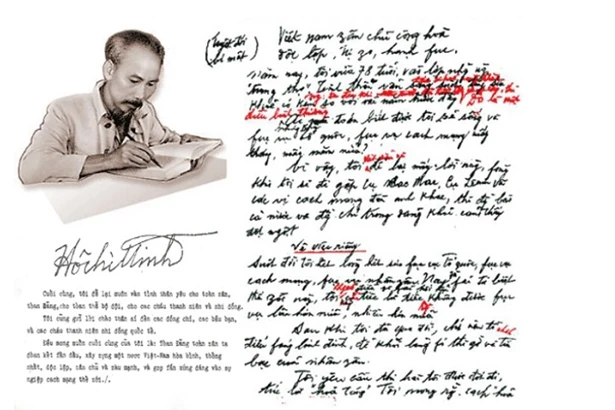 (Tuyệt đối
bí mật)
Việt nam zân chủ cộng hoà
độc lập, tự zo, hạnh fúc.
Năm nay, tôi vừa 78 tuổi, vào lớp những người
"trung thọ". Tinh thần vẫn
khoẻ so với vài năm trước đây Đó là một
điều bình thường
biết được tôi còn sống và
fục vụ tổ quốc, fục vụ cách mạng mấy
tháng, mấy năm nữa?
Vì vậy, tôi để lại mấy lời này, fòng
khi tôi sẽ đi gặp cụ Các Mác, cụ Lenin và
các vị cách mạng đàn anh khác, thì đồng bào
cả nước và đồng chí trong đảng khỏi cảm thấy
đột ngột
Về việc riêng
Suốt đời tôi hết lòng hết sức fục vụ tổ quốc, fục vụ
cách mạng, fục vụ nhân dân. Nay fải từ biệt
thế zới này, tôi tiếc là tiếc không được fục
vụ lâu hơn nữa, nhiều hơn nữa
Sau khi tôi đã qua đời, chớ nên tổ chức
điếu fúng linh đình, để khỏi lãng fí thì zờ và tiền
bạc của nhân zân.
Tôi yêu cầu thi hài tôi được đốt đi,
tức là "hoả táng" Tôi mong rằng cách hoả
Hồ Chí Minh
Cuối cùng, tôi để lại muôn vàn tình thân yêu cho toàn dân,
toàn Đảng, cho toàn thể bộ đội, cho các cháu thanh niên và nhi đồng.
Tôi cũng gửi lời chào thân ái đến các đồng chí, các bầu bạn,
và các cháu thanh niên nhi đồng quốc tế.
Điều mong muốn cuối cùng của tôi là: Toàn Đảng toàn dân ta
đoàn kết phấn đấu, xây dựng một nước Việt-Nam hòa bình, thống
nhất, độc lập, dân chủ và giàu mạnh, và góp phần xứng đáng vào sự
nghiệp cách mạng thế giới./.